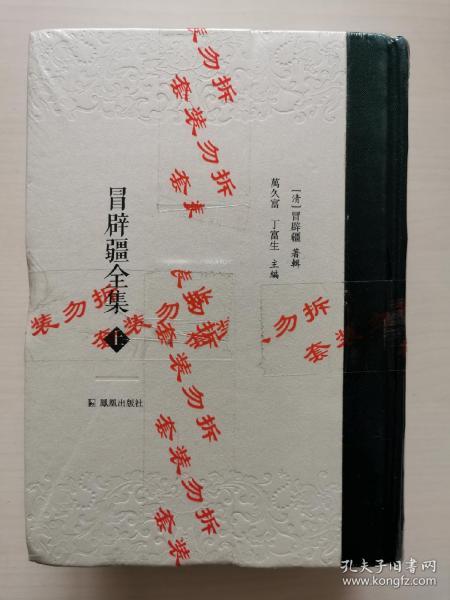 [清]冒辟疆 著輯
萬久富 丁富生 主編
冒辟疆全集
十
鳳凰出版社
套装勿拆
套装勿拆
套装勿拆
套装勿拆
套装勿拆
套装勿拆
套装勿拆
孔夫子旧书网
www.kongfz.com